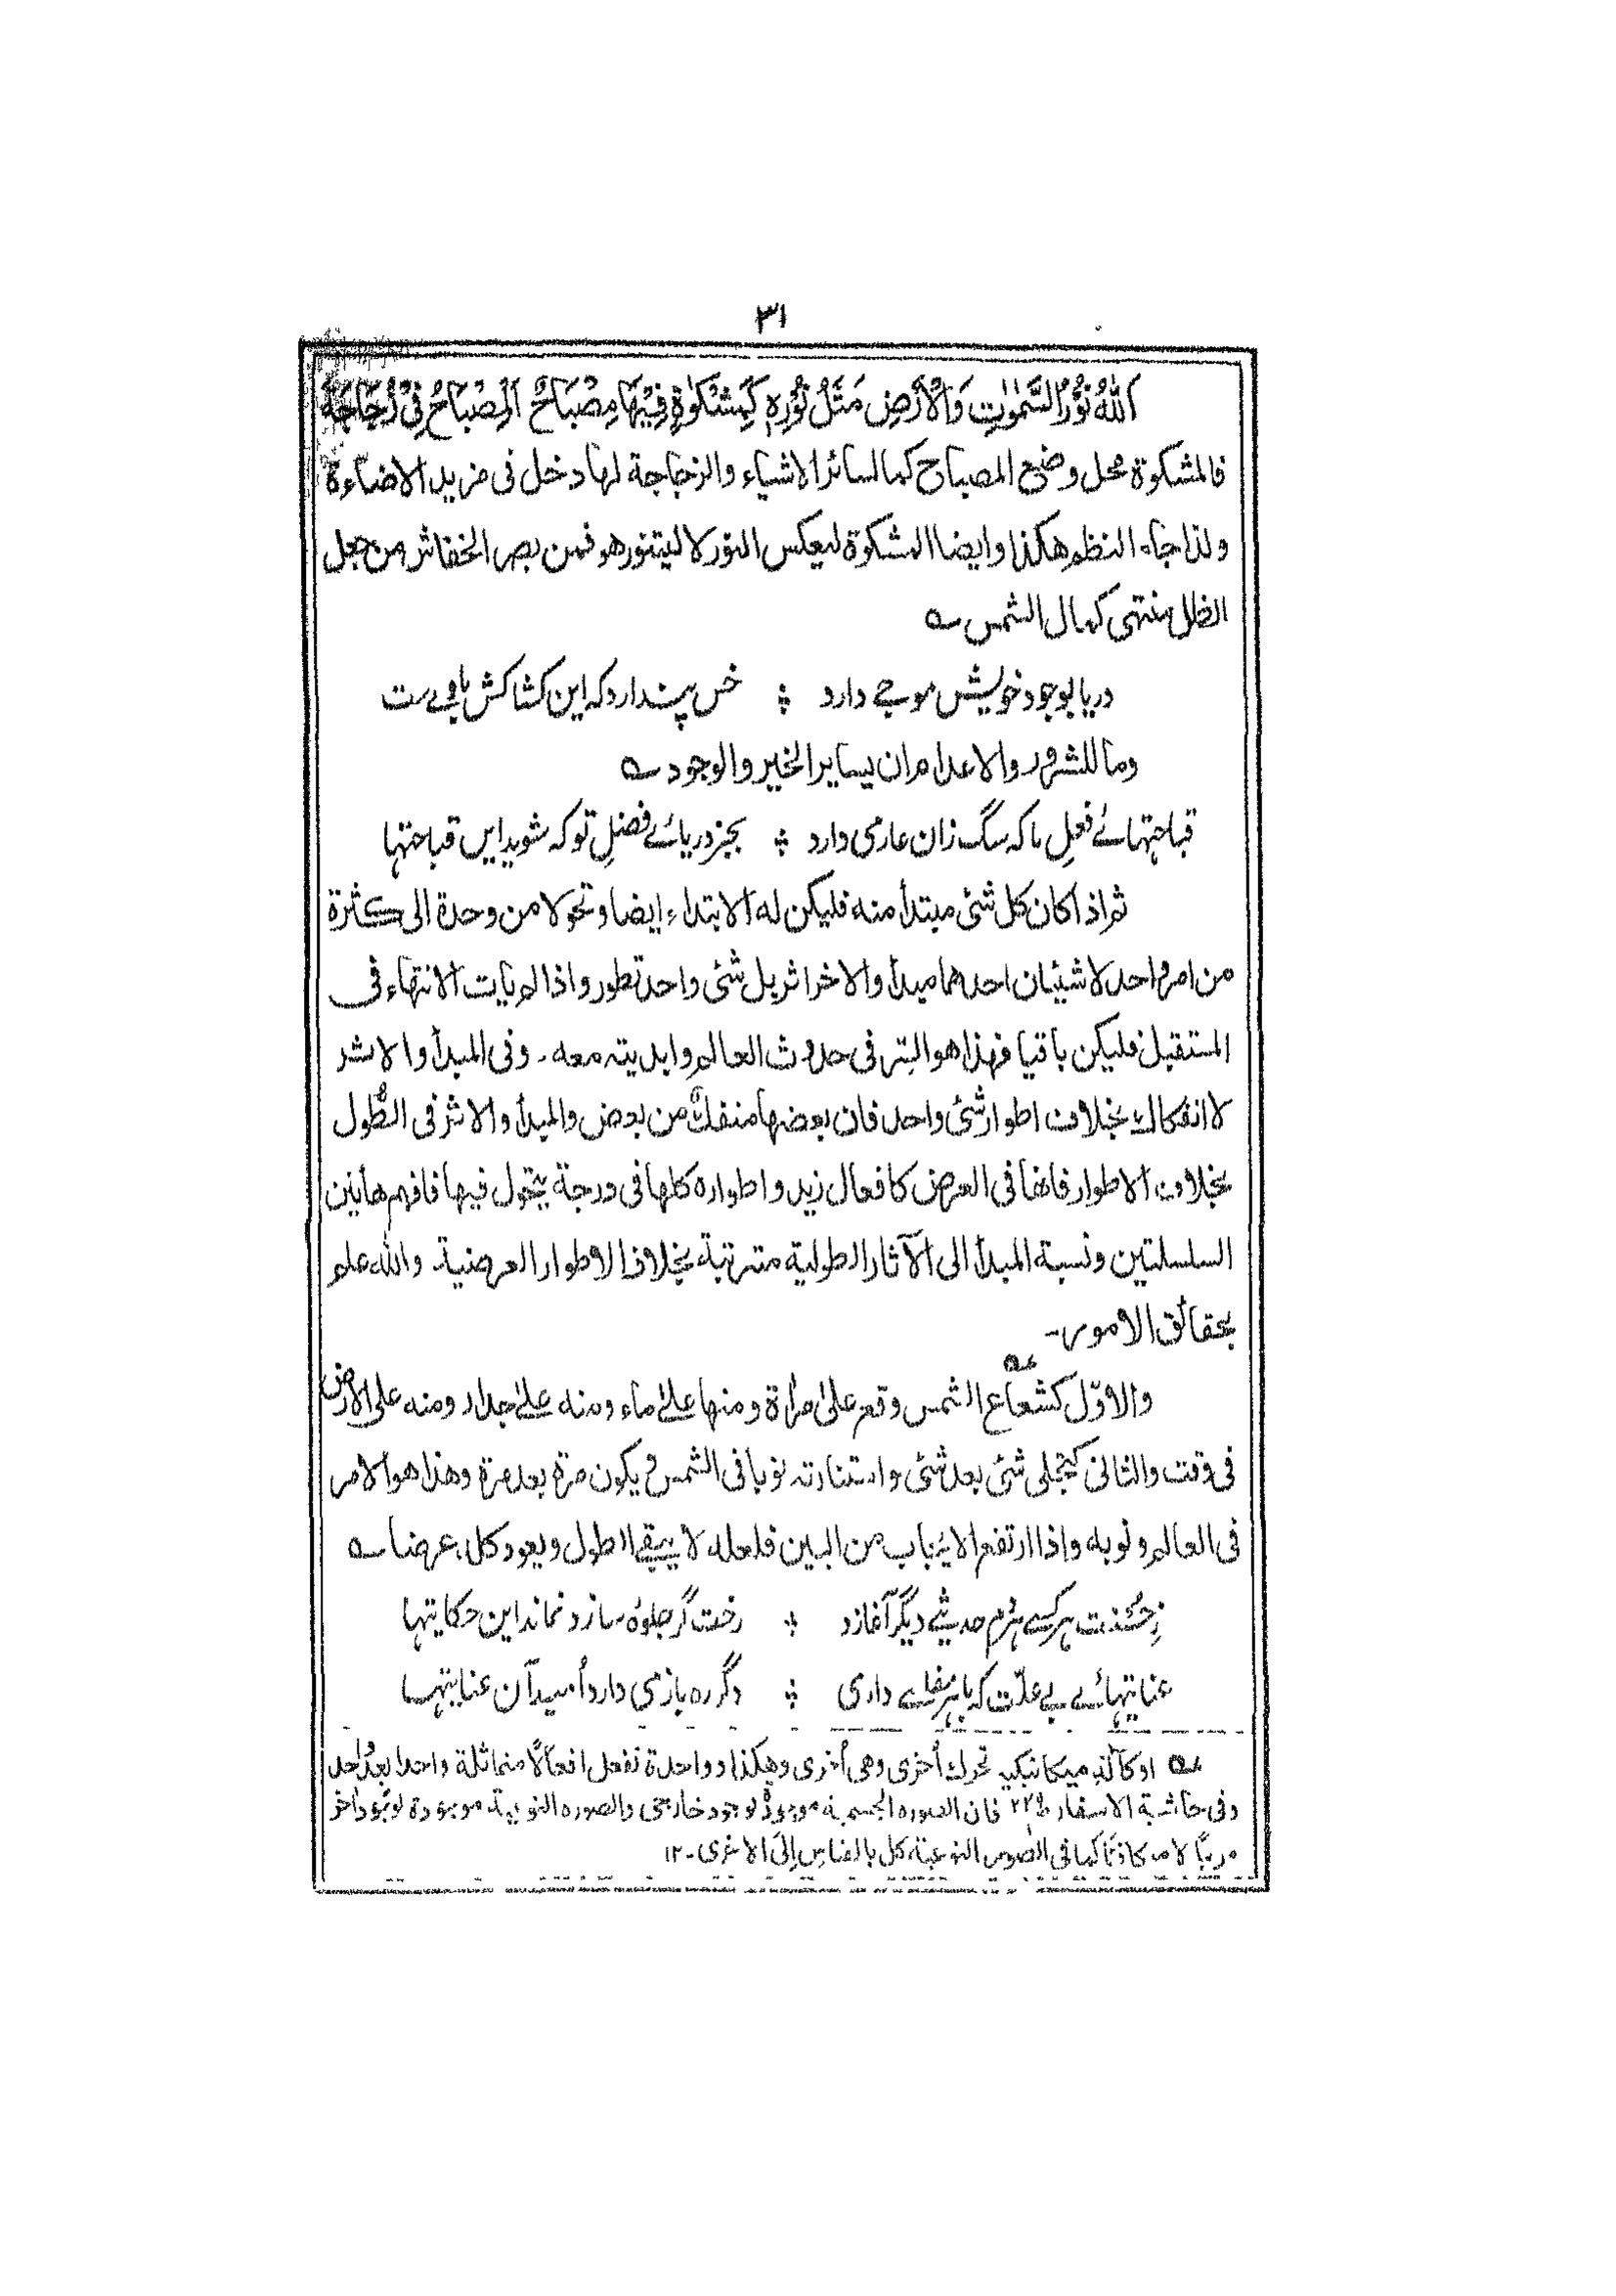 ٣١
اَللّٰهُ نُوْرُ السَّمٰوٰتِ وَالْاَرْضِ مَثَلُ نُوْرِهٖ كَمِشْكٰوةٍ فِيْهَا مِصْبَاحٌ اَلْمِصْبَاحُ فِىْ زُجَاجَةٍ
فالمشكوة محل وضع المصباح كما لسائر الاشياء والزجاجة لها دخل فى مزيد الاضاءة
ولذا جاء النظم هكذا وايضا المشكوة ليعكس النور لا ليتنور هو فمن بصر الخفاش من جعل
الظل منتهى كمال الشمس ؎
دریا بوجود خویش موجے دارد ؞ خس پندارد کہ این کشاکش باوے ست
وما للشرور والاعدام ان يساير الخير والوجود ؎
قباحتہائے فعلِ ما کہ سگ زان عارمی دارد ؞ بجز دریائے فضلِ تو کہ شوید ایں قباحتہا
ثم اذا كان كل شئ مبتدأ منه فليكن له الابتداء ايضا وتحولا من وحدة الى كثرة
من امر واحد لا شيئان احدهما مبدأ والاخر اثر بل شئ واحد تطور واذا لم يأت الانتهاء فى
المستقبل فليكن باقيا فهذا هو السر فى حدوث العالم وابديته معه ۔ وفى المبدأ والاثر
لا انفكاك بخلاف اطوار شئ واحد فان بعضها منفك من بعض والمبدأ والاثر فى الطُّول
بخلاف الاطوار فانها فى العرض كافعال زيد واطواره كلها فى درجة يتحول فيها فافهم هاتين
السلسلتين ونسبة المبدأ الى الآثار الطولية مترتبة بخلاف الاطوار العرضية۔ والله علم
بحقائق الامور۔
والاوّل كشعاع الشمس وقع على مرأة ومنها على ماء ومنه على جدار ومنه على الارض
فى وقت والثانى كتجلى شئ بعد شئ واستنارته نوبا فى الشمس ويكون مرة بعد مرة وهذا هو الامر
فى العالم ونوبه واذا ارتفع من البين فلعله لا يبقى الطول ويعود كل عرضا ؎
زحسنت ہر کسے ہر دم حدیثے دیگر آغازد ؞ رخت گر جلوہ سازد نماند این حکایتہا
عنایتہائے بے علّت کہ با ہر داری ؞ دگر رہ بازمی دارد اُمید آن عنایتہا
؎ او كآلة ميكانيكية تحرك أخرى وهى أخرى وهكذا وواحدة تفعل افعالًا متماثلة واحدا بعد واحد
وفى حاشية الاسفار فان الصورة الجسمية موجودة بوجود خارجى والصورة النوعية موجودة بوجود اخر
كما فى الصور النوعية كل بالقياس الى الاخرى۔ ١٢